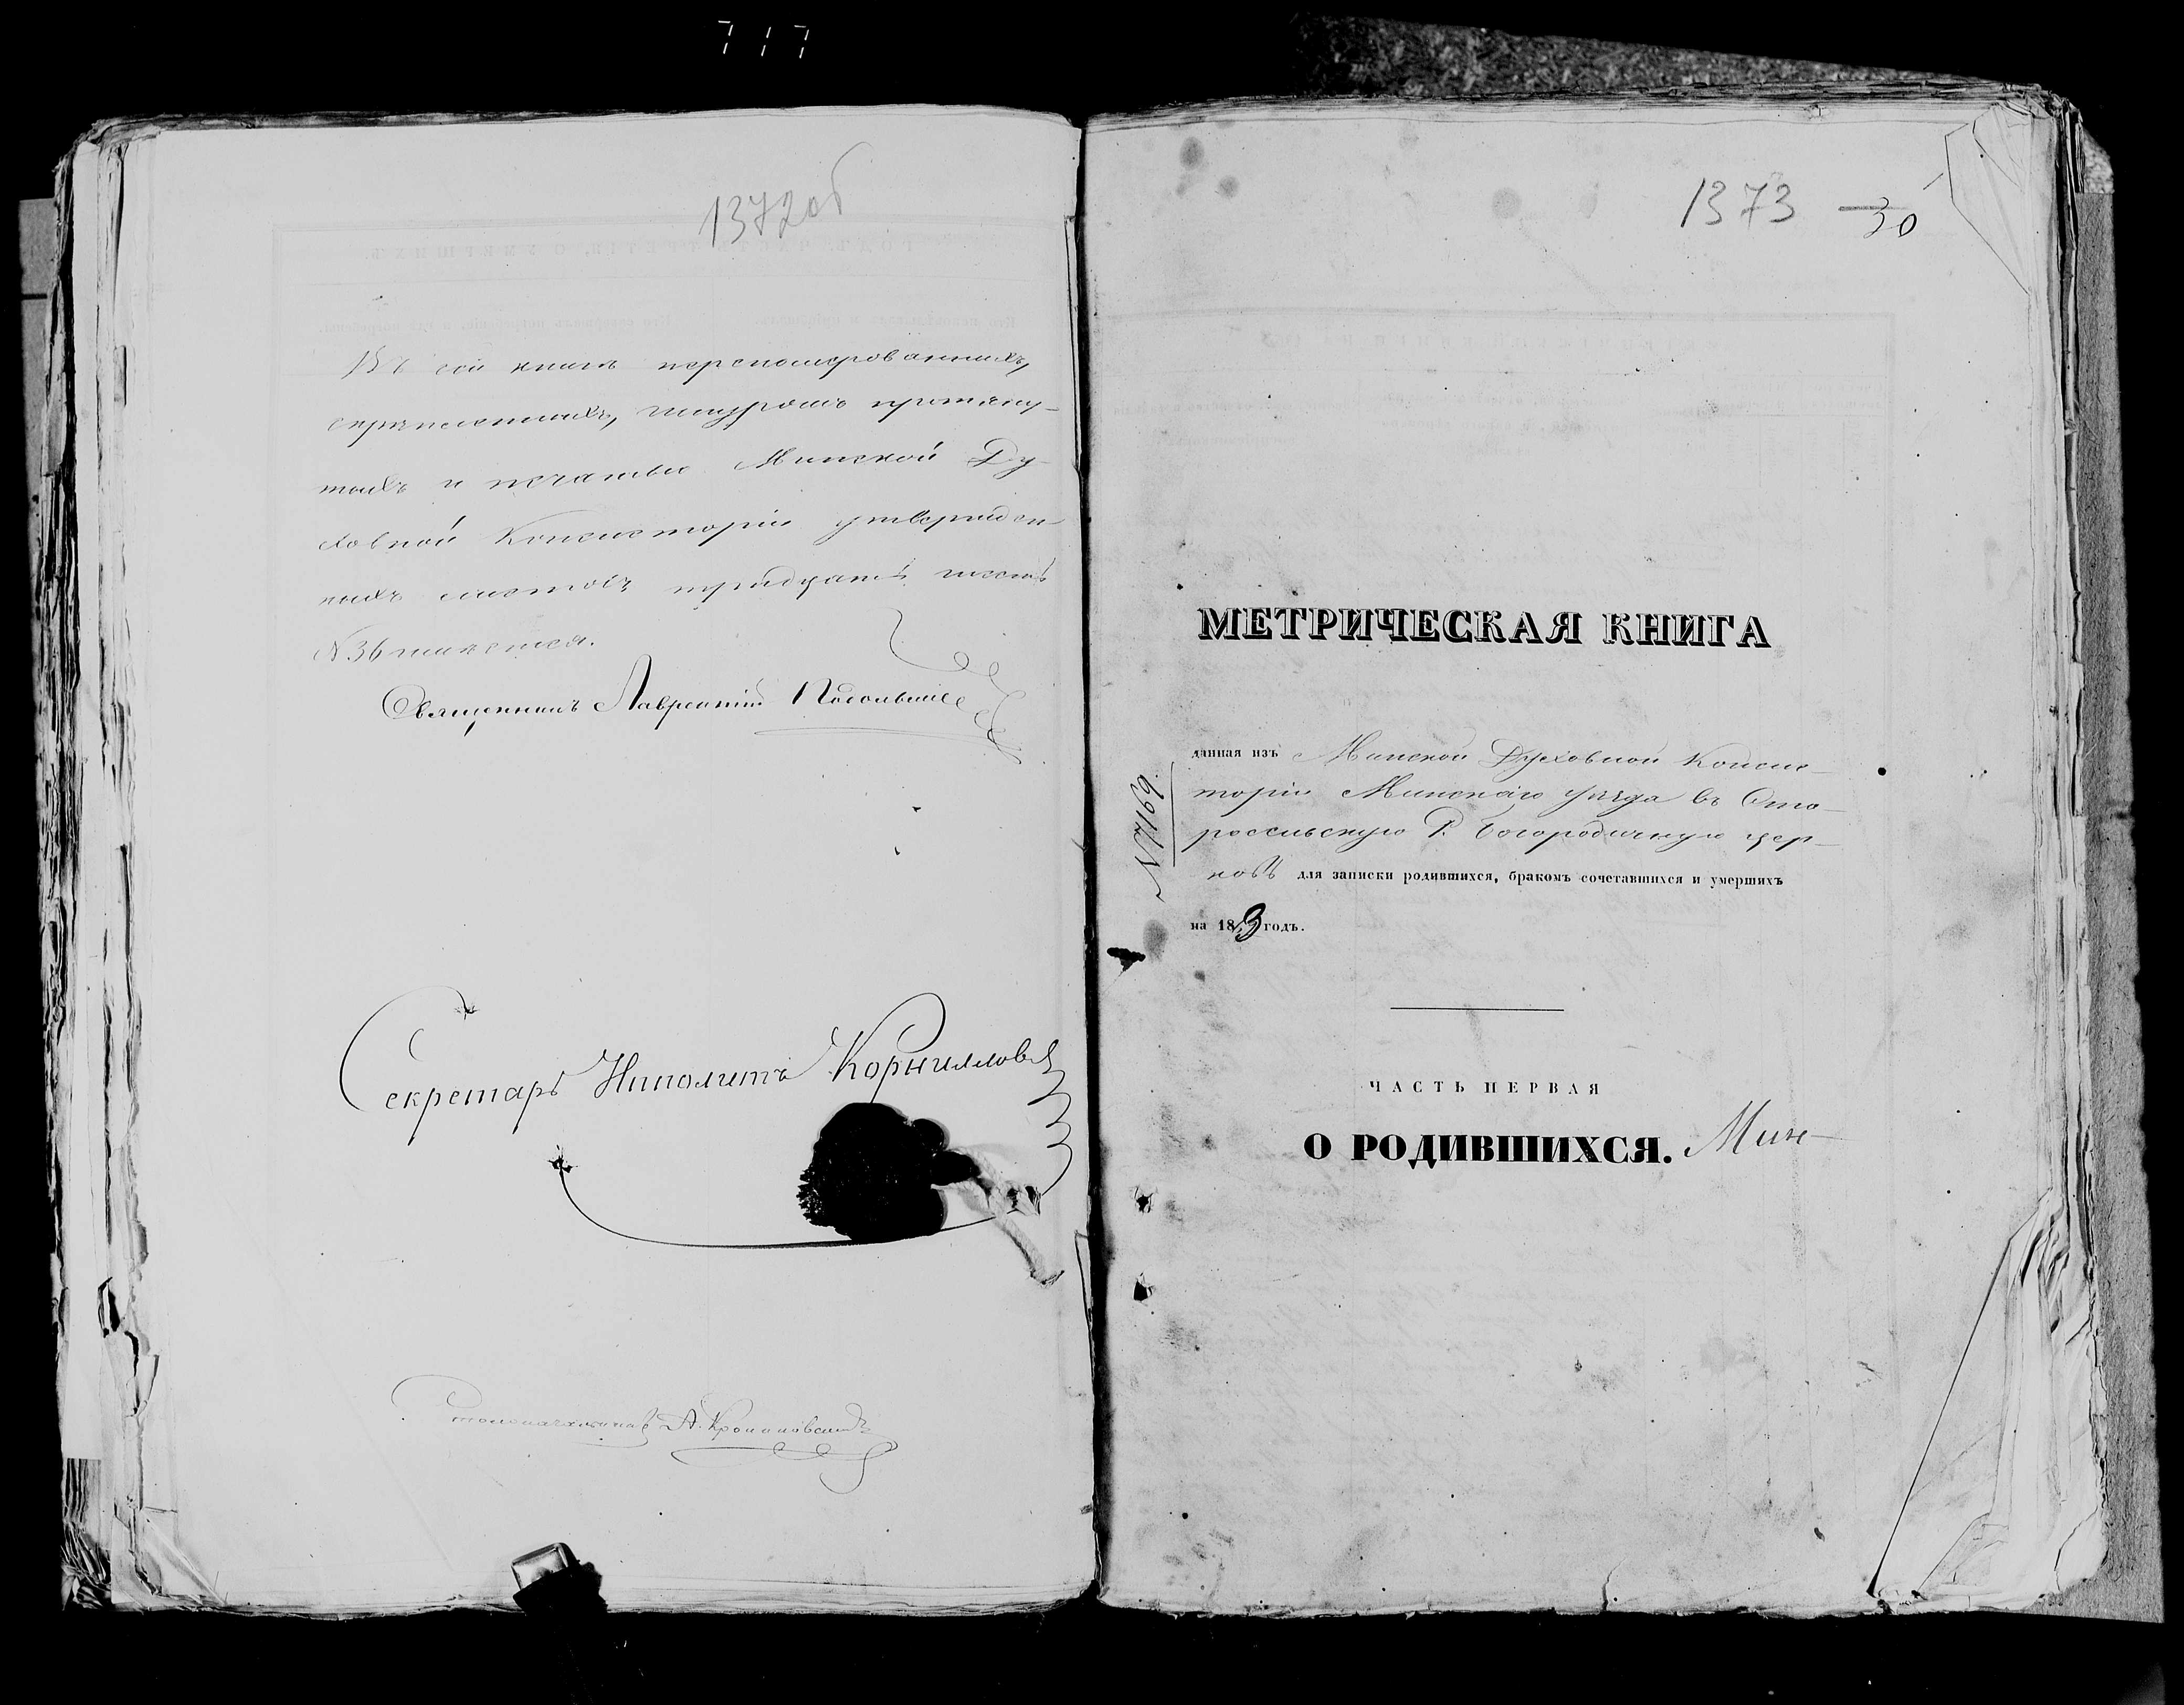 717
1372об
Въ сей книгѣ переномерованныхъ,
скрѣпленныхъ, шнуромъ протяну-
тыхъ и печатью Минской Ду-
ховной Консисторіи утвержден-
ныхъ листовъ тридцать шесть
N 36 имѣется.
Священникъ Лаврентій
Секретарь Иполитъ Корниловъ
Столоначальникъ А.
1373 30
МЕТРИЧЕСКАЯ КНИГА
N 7169.
данная изъ Минской Духовной Консис-
торіи Минскаго уѣзда въ Ста-
росельскую Р. Богородичную цер-
ковь для записки родившихся, бракомъ сочетавшихся и умершихъ
на 18 годъ.
ЧАСТЬ ПЕРВАЯ
О РОДИВШИХСЯ. Мин-